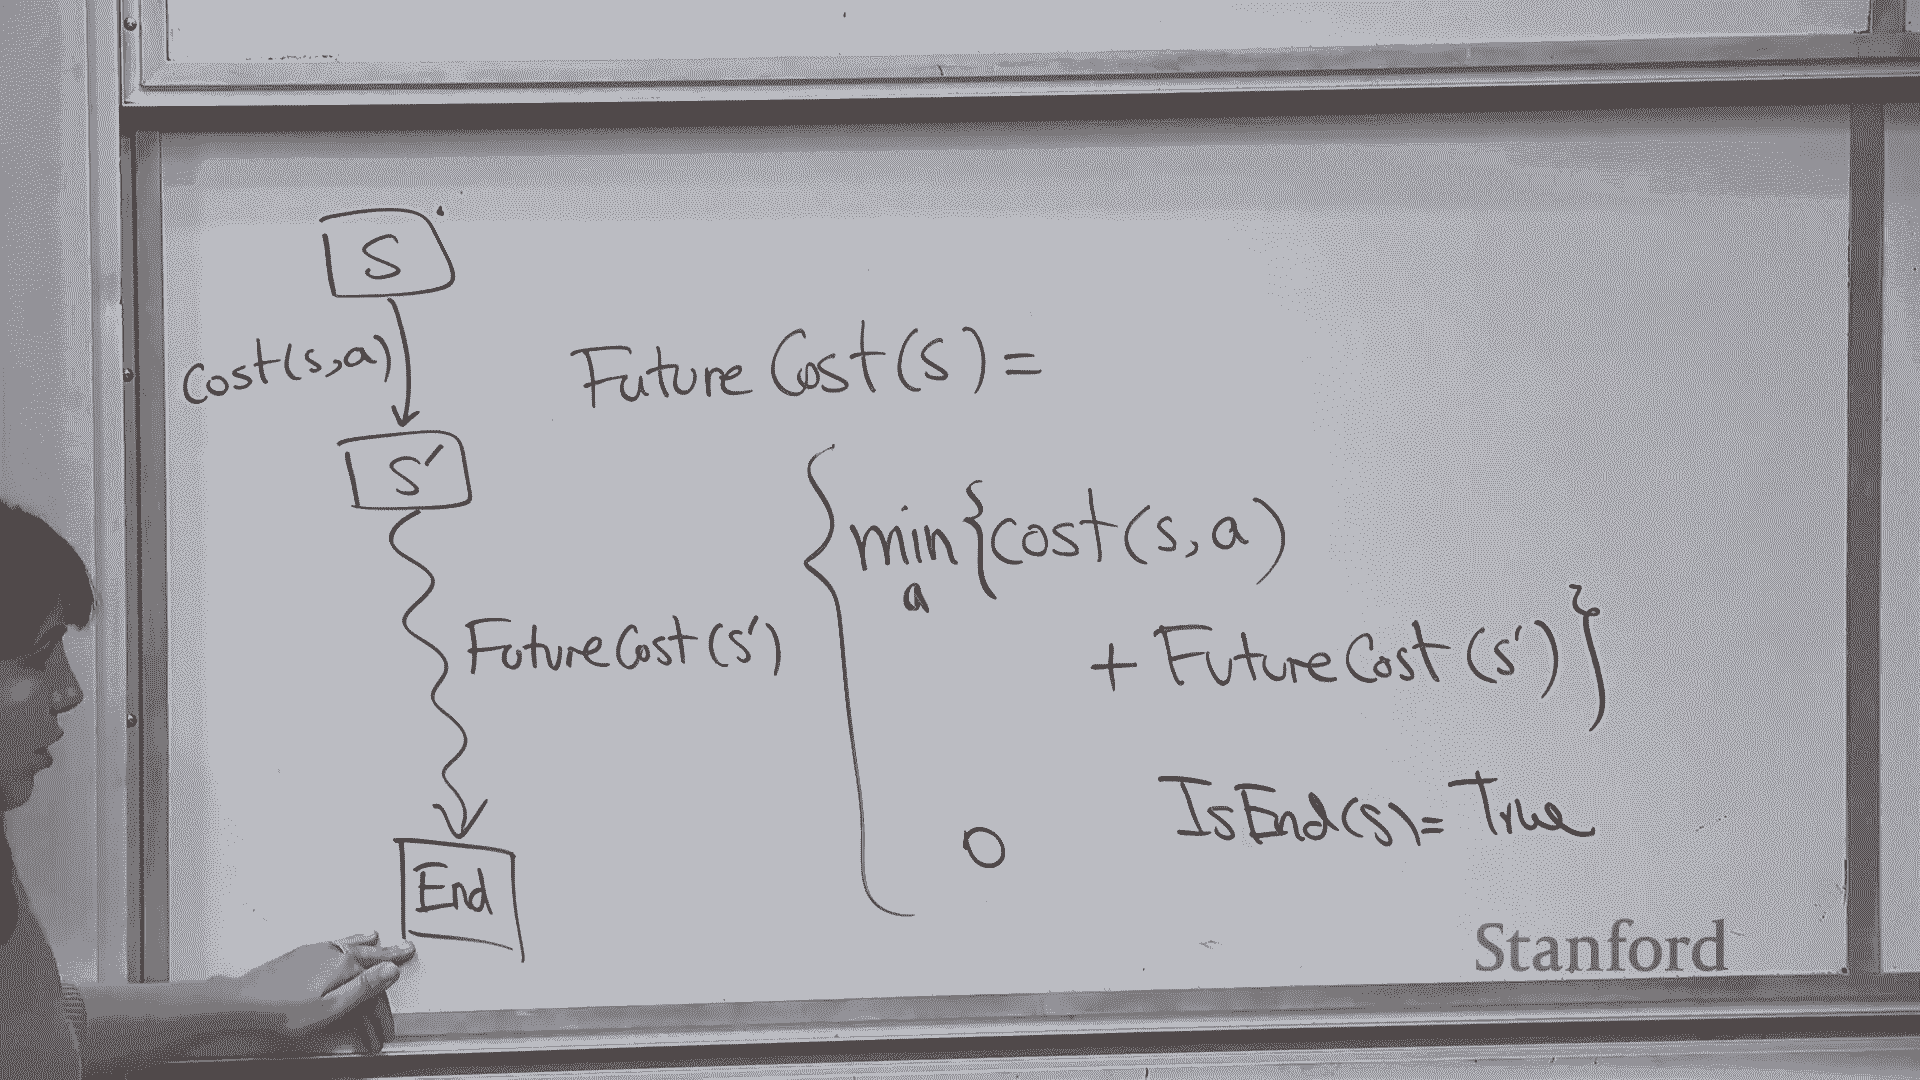 S
Cost(s,a)
S'
FutureCost(s')
End
Future Cost(s) =
min{cost(s,a)
a
+ FutureCost(s')}
0 IsEnd(s)= True
Stanford